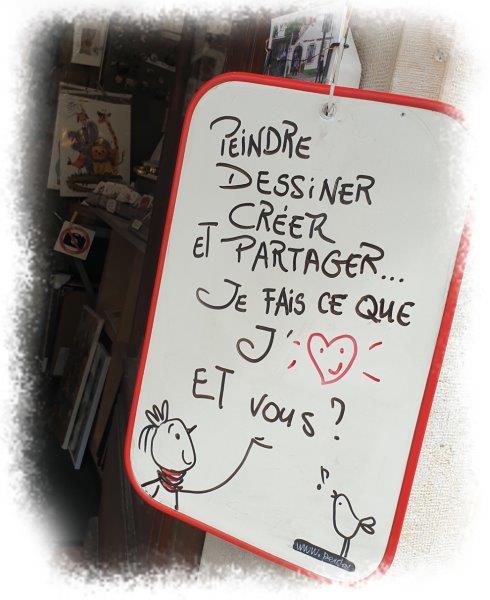 PEINDRE
DESSINER
CRÉER
ET PARTAGER...
JE FAIS CE QUE
J'
ET VOUS ?